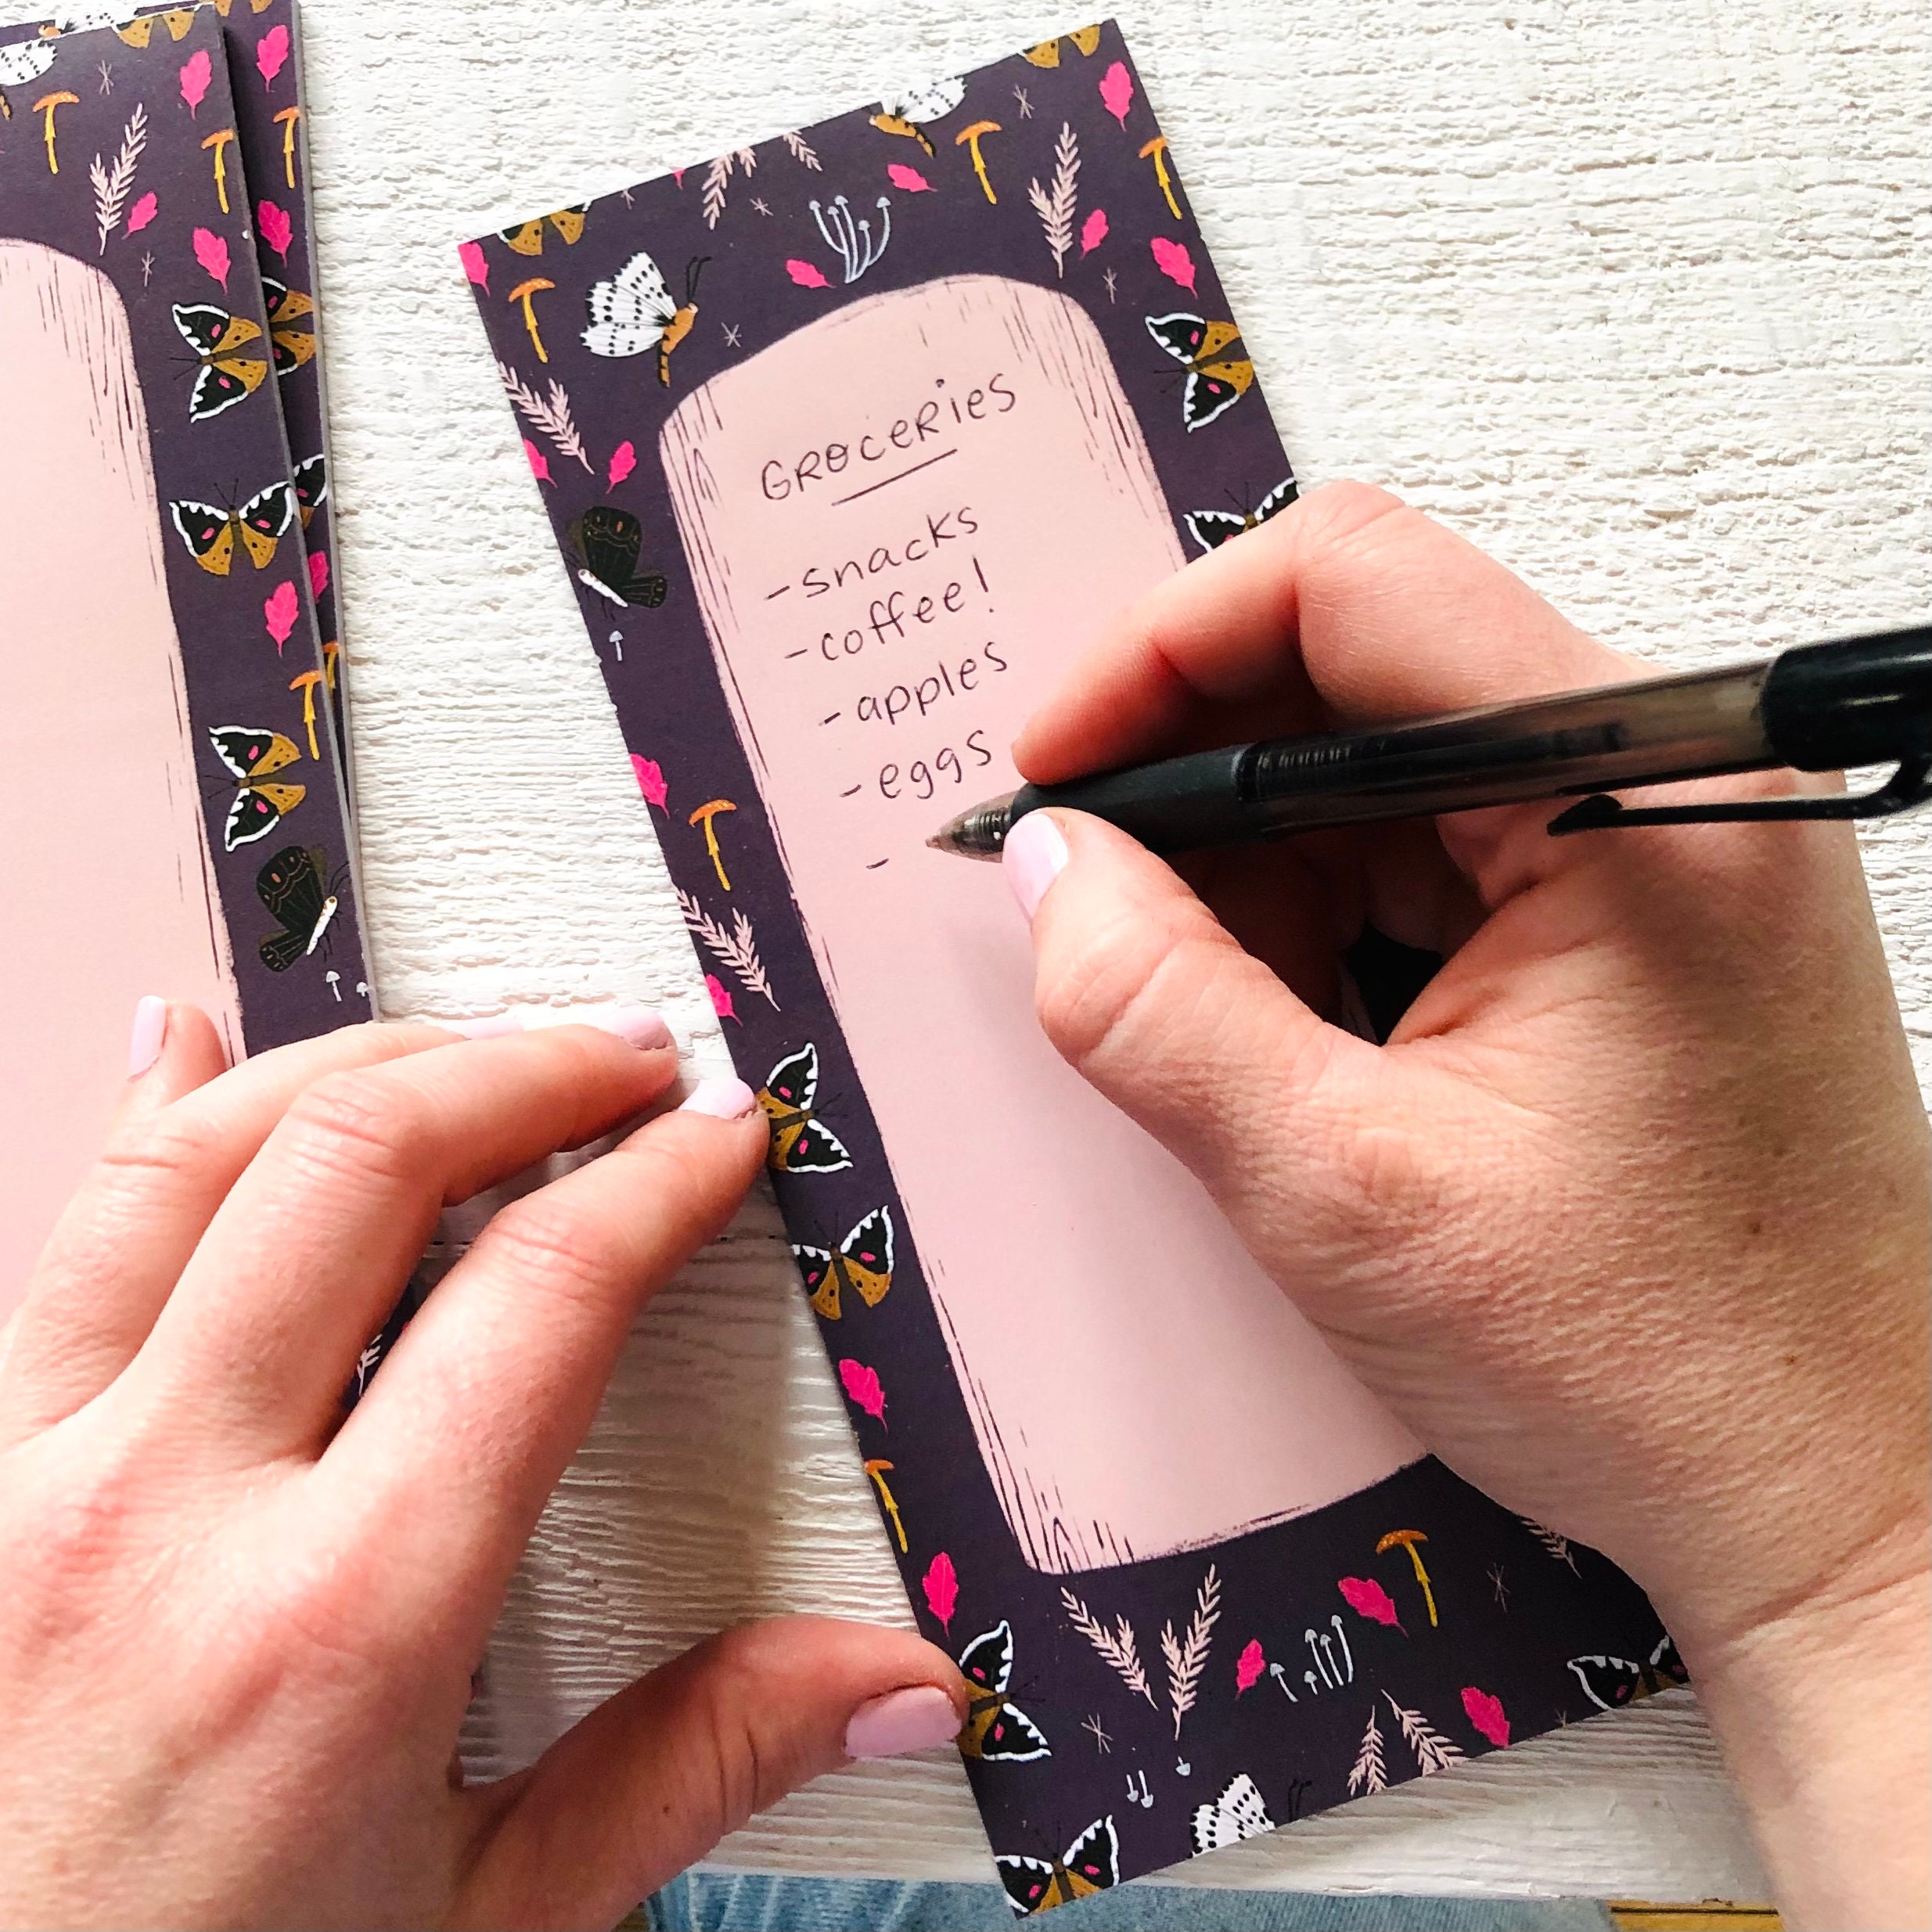 GROCERIES
- snacks
- coffee!
- apples
- eggs
-